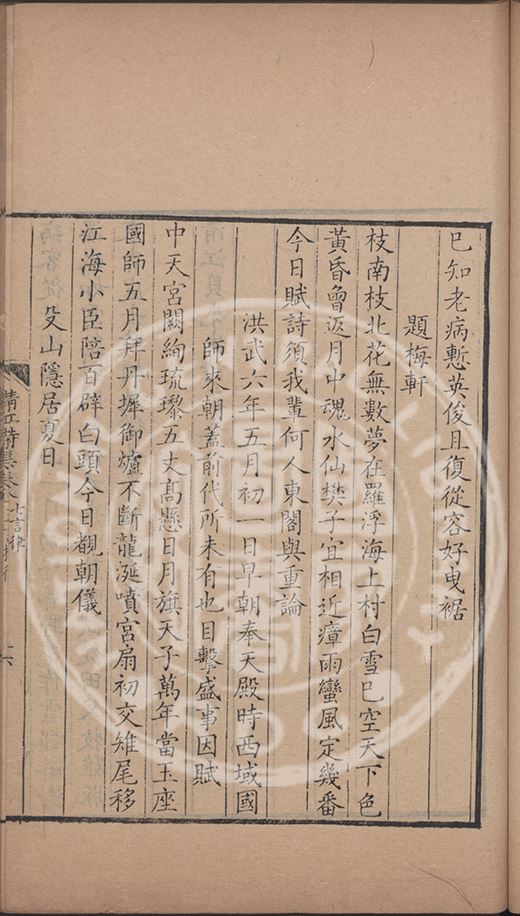 已知老病慙英俊且復從容好曳裾
題梅軒
枝南枝北花無數夢在羅浮海上村白雪已空天下色
黃昏曾返月中魂水仙樊子宜相近瘴雨蠻風定幾番
今日賦詩須我輩何人東閣與重論
洪武六年五月初一日早朝奉天殿時西域國
師來朝蓋前代所未有也目擊盛事因賦
中天宮闕絢琉璨五丈髙懸日月旗天子萬年當玉座
國師五月拜丹墀御爐不斷龍涎噴宮扇初交雉尾移
江海小臣陪百辟白頭今日覩朝儀
殳山隱居夏日
清江詩集卷 七言律